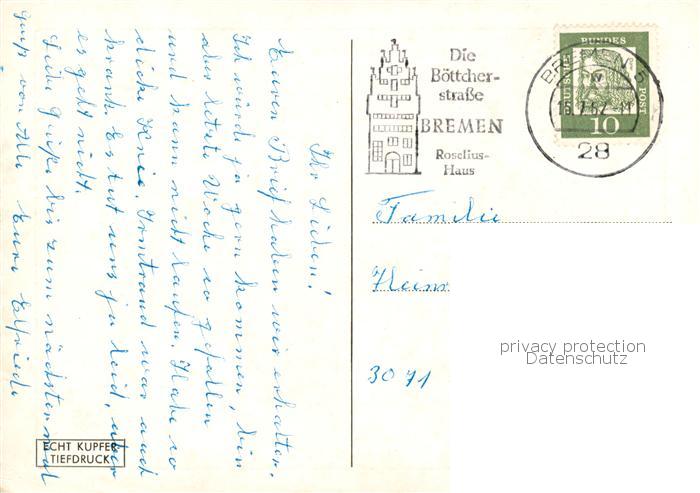 Ihr Lieben!
Euren Brief haben wir erhalten.
Ich würd ja gern kommen, bin
aber letzte Woche so gefallen
und kann nicht laufen. Habe so
dicke Knie. Irmtraud war auch
krank. Es tut uns ja leid, aber
es geht nicht.
Liebe Grüße bis zum nächstenmal
Gruß von Alle Eure Elfriede
ECHT KUPFER
TIEFDRUCK
Die
Böttcher-
straße
BREMEN
Roselius-
Haus
BREMEN 5
28
BUNDES
POST
10
Familie
Heinr
3071
privacy protection
Datenschutz